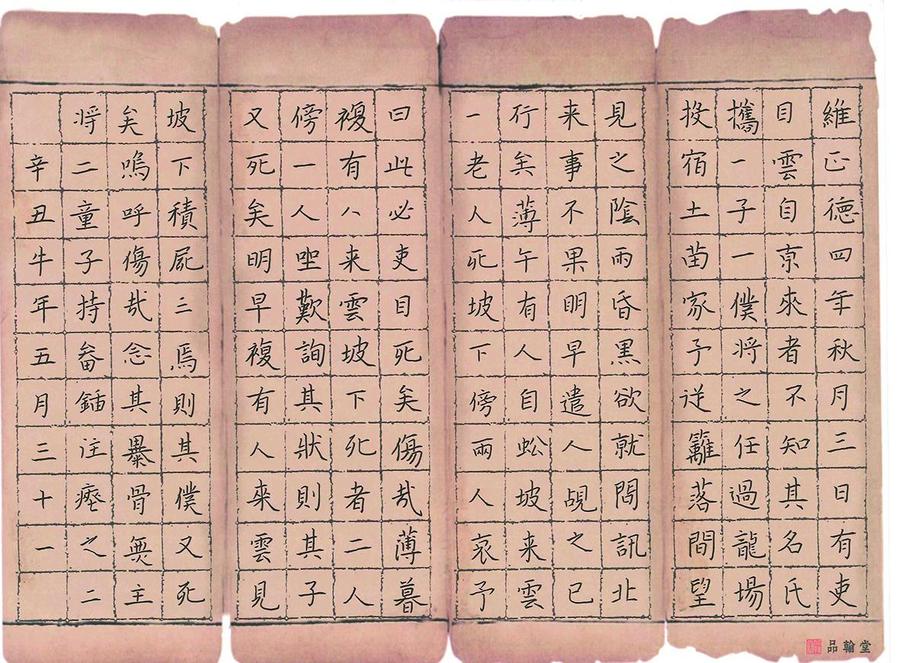 維正德四年秋月三日有吏
目雲自京來者不知其名氏
攜一子一僕將之任過龍場
投宿土苗家予從籬落間望
見之陰雨昏黑欲就問訊北
来事不果明早遣人覘之已
行矣薄午有人自蚣坡来雲
一老人死坡下傍兩人哀予
曰此必吏目死矣傷哉薄暮
複有八来雲坡下死者二人
傍一人坐歎詢其狀則其子
又死矣明早複有人来雲見
坡下積屍三焉則其僕又死
矣嗚呼傷哉念其暴骨無主
将二童子持畚鍤注瘞之二
辛丑牛年五月三十一
品翰堂